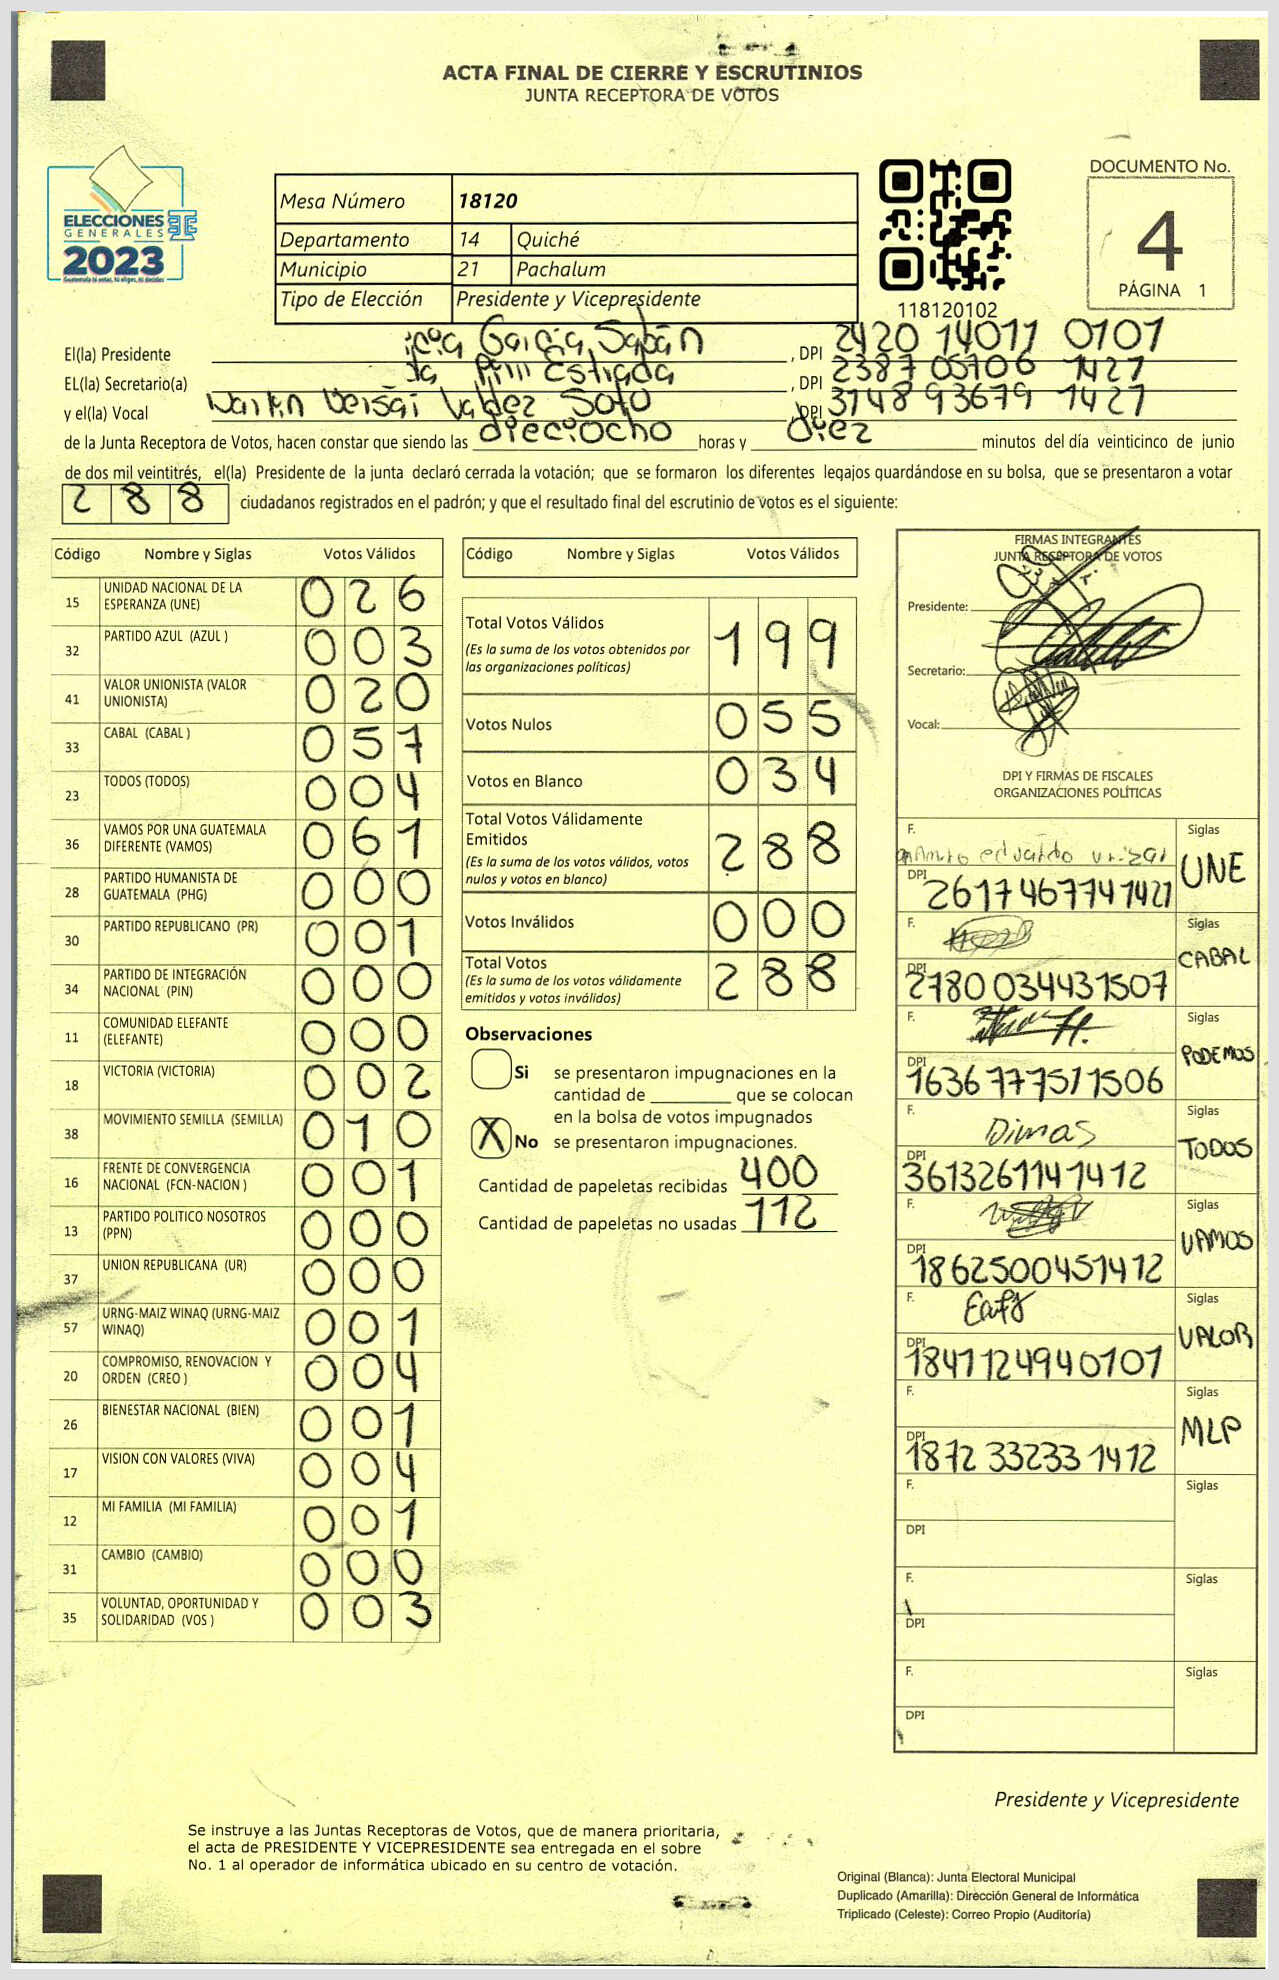 ACTA FINAL DE CIERRE Y ESCRUTINIOS
JUNTA RECEPTORA DE VOTOS
ELECCIONES
GENERALES
2023
Mesa Número 18120
Departamento 14 Quiché
Municipio 21 Pachalum
Tipo de Elección Presidente y Vicepresidente
118120102
DOCUMENTO No.
4
PÁGINA 1
El(la) Presidente García Sabán , DPI 2420 14011 0101
EL(la) Secretario(a) Estrada , DPI 2387 05706 1427
y el(la) Vocal Valdez Soto , DPI 3148 93679 1421
de la Junta Receptora de Votos, hacen constar que siendo las dieciocho horas y diez minutos del día veinticinco de junio
de dos mil veintitrés, el(la) Presidente de la junta declaró cerrada la votación; que se formaron los diferentes legajos guardándose en su bolsa, que se presentaron a votar
288 ciudadanos registrados en el padrón; y que el resultado final del escrutinio de votos es el siguiente:
Código Nombre y Siglas Votos Válidos
15 UNIDAD NACIONAL DE LA ESPERANZA (UNE) 026
32 PARTIDO AZUL (AZUL ) 003
41 VALOR UNIONISTA (VALOR UNIONISTA) 020
33 CABAL (CABAL ) 057
23 TODOS (TODOS) 004
36 VAMOS POR UNA GUATEMALA DIFERENTE (VAMOS) 061
28 PARTIDO HUMANISTA DE GUATEMALA (PHG) 000
30 PARTIDO REPUBLICANO (PR) 001
34 PARTIDO DE INTEGRACIÓN NACIONAL (PIN) 000
11 COMUNIDAD ELEFANTE (ELEFANTE) 000
18 VICTORIA (VICTORIA) 002
38 MOVIMIENTO SEMILLA (SEMILLA) 010
16 FRENTE DE CONVERGENCIA NACIONAL (FCN-NACION ) 001
13 PARTIDO POLITICO NOSOTROS (PPN) 000
37 UNION REPUBLICANA (UR) 000
57 URNG-MAIZ WINAQ (URNG-MAIZ WINAQ) 001
20 COMPROMISO, RENOVACION Y ORDEN (CREO ) 004
26 BIENESTAR NACIONAL (BIEN) 001
17 VISION CON VALORES (VIVA) 004
12 MI FAMILIA (MI FAMILIA) 001
31 CAMBIO (CAMBIO) 000
35 VOLUNTAD, OPORTUNIDAD Y SOLIDARIDAD (VOS ) 003
Código Nombre y Siglas Votos Válidos
Total Votos Válidos 199
(Es la suma de los votos obtenidos por
las organizaciones políticas)
Votos Nulos 055
Votos en Blanco 034
Total Votos Válidamente
Emitidos 288
(Es la suma de los votos válidos, votos
nulos y votos en blanco)
Votos Inválidos 000
Total Votos 288
(Es la suma de los votos válidamente
emitidos y votos inválidos)
Observaciones
Si se presentaron impugnaciones en la
cantidad de ________ que se colocan
en la bolsa de votos impugnados
X No se presentaron impugnaciones.
Cantidad de papeletas recibidas 400
Cantidad de papeletas no usadas 112
FIRMAS INTEGRANTES
JUNTA RESEPTORA DE VOTOS
Presidente:
Secretario:
Vocal:
DPI Y FIRMAS DE FISCALES
ORGANIZACIONES POLÍTICAS
F. eduardo Siglas UNE
DPI 2617467741421
F. Siglas CABAL
DPI 2780034431507
F. Siglas PODEMOS
DPI 1636777511506
F. Dimas Siglas TODOS
DPI 3613261141412
F. Siglas VAMOS
DPI 1862500451412
F. Siglas VALOR
DPI 1841124940101
F. Siglas MLP
DPI 1872 33233 1412
F. Siglas
DPI
F. Siglas
DPI
F. Siglas
DPI
Presidente y Vicepresidente
Se instruye a las Juntas Receptoras de Votos, que de manera prioritaria,
el acta de PRESIDENTE Y VICEPRESIDENTE sea entregada en el sobre
No. 1 al operador de informática ubicado en su centro de votación.
Original (Blanca): Junta Electoral Municipal
Duplicado (Amarilla): Dirección General de Informática
Triplicado (Celeste): Correo Propio (Auditoría)